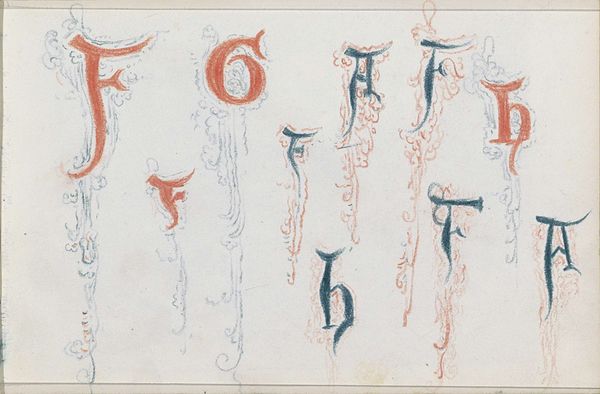 F G A F h
F
F F A
h